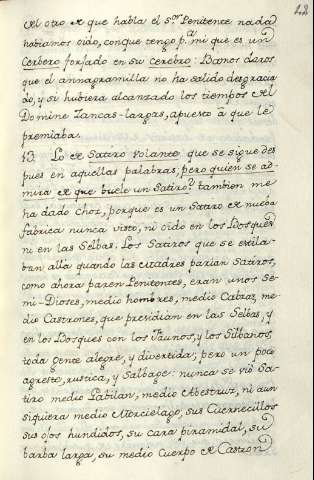 42
del otro de que habla el S.or Penitente nada
habiamos oido, conque tengo p.a mi que es un
Cerbero forjado en su cerebro. Bamos claros
que el annagramilla no ha salido desgracia
do, y si hubiera alcanzado los tiempos del
Domine Zancas-largas, apuesto à que le
premiaba.
13. Lo de Satiro volante que se sigue des
pues en aquellas palabras; pero quien se ad-
mira de que buele un Satiro? tambien me
ha dado choz, porque es un Satiro de nueba
fabrica nunca visto, ni oido en los Bosques
ni en las Selbas. Los Satiros que se estila-
ban alla quando las citadres parian Satiros,
como ahora paren Penitentes, eran unos Se-
mi-Dioses, medio hombres, medio Cabras, me
dio Castrones, que presidian en las Selbas, y
en los Bosques con los Faunos, y los Silbanos,
toda gente alegre, y divertida; pero un poco
agreste, rustica, y Salbage: nunca se vió Sa-
tiro medio Gabilan, medio Abestruz, ni aun
siquiera medio Morcielago, sus Cuernecillos
sus ojos hundidos, su cara piramidal, su
barba larga, su medio Cuerpo de Castron